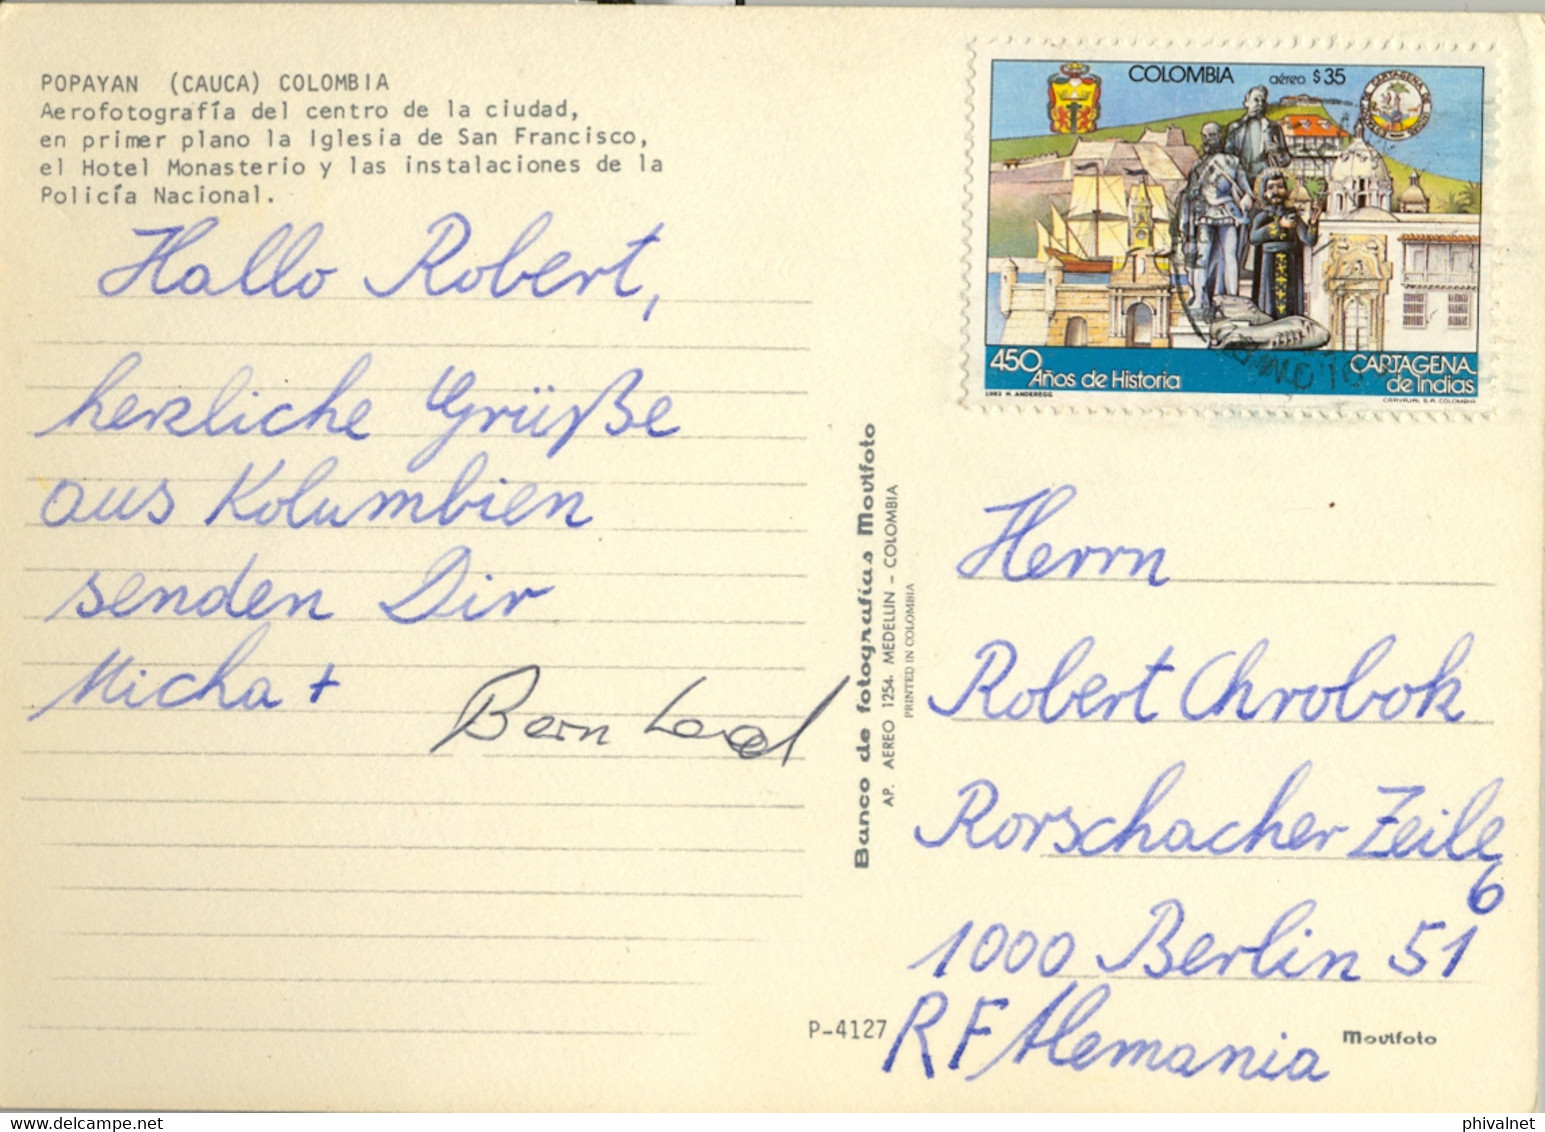 POPAYAN (CAUCA) COLOMBIA
Aerofotografía del centro de la ciudad,
en primer plano la Iglesia de San Francisco,
el Hotel Monasterio y las instalaciones de la
Policía Nacional.
Hallo Robert,
herzliche Grüße
aus Kolumbien
senden Dir
Micha +
Bern
Banco de fotografías Movifoto
AP. AEREO 1254. MEDELLIN - COLOMBIA
PRINTED IN COLOMBIA
P-4127
COLOMBIA aéreo $35
450
Años de Historia
CARTAGENA
de Indias
1983 H. ANDEREGG
CARVAJAL S.A. COLOMBIA
Herrn
Robert Chrobok
Rorschacher Zeile
6
1000 Berlin 51
RF Alemania
Movifoto
delcampe.net
phivalnet